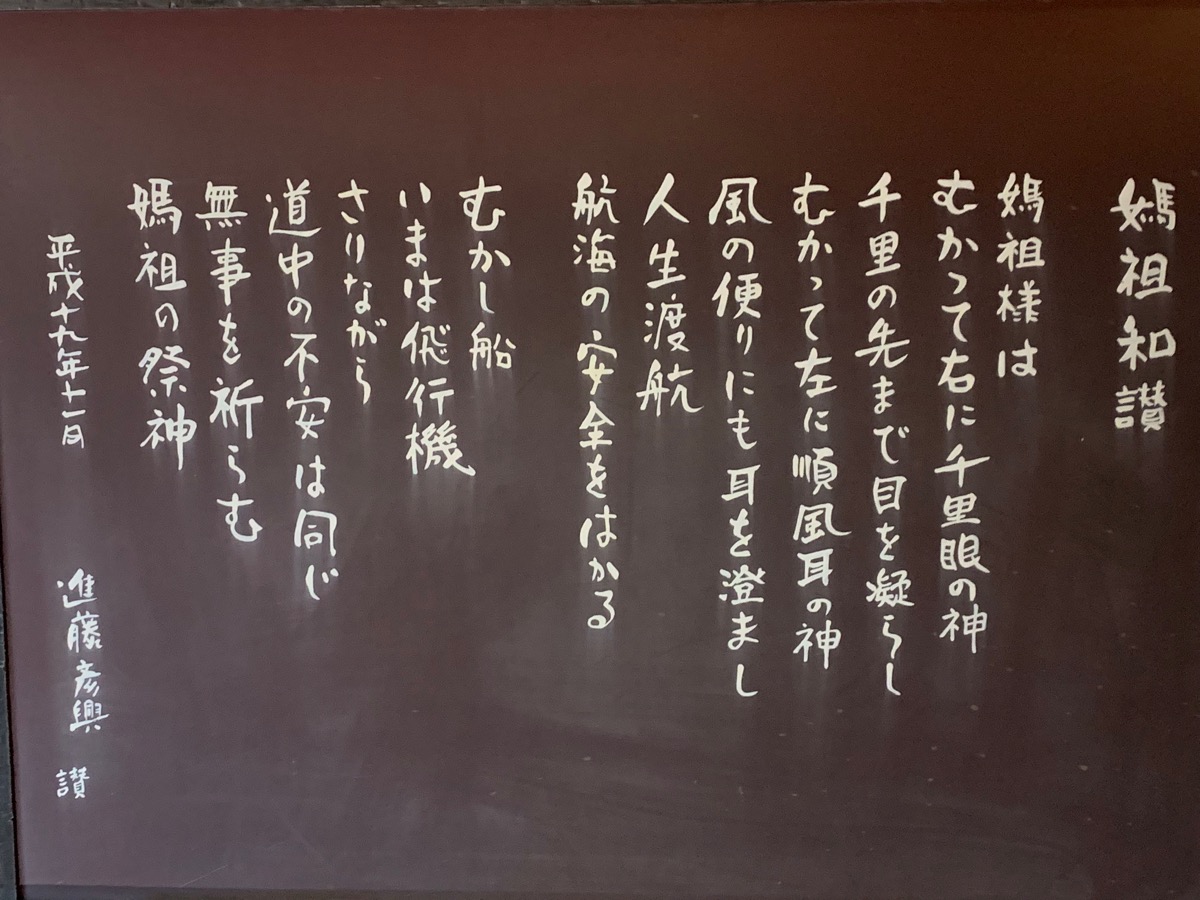 媽祖和讃
媽祖様は
むかって右に千里眼の神
千里の先まで目を凝らし
むかって左に順風耳の神
風の便りにも耳を澄まし
人生渡航
航海の安全をはかる
むかし船
いまは飛行機
さりながら
道中の不安は同じ
無事を祈らむ
媽祖の祭神
平成十九年十一月 進藤彦興 讃